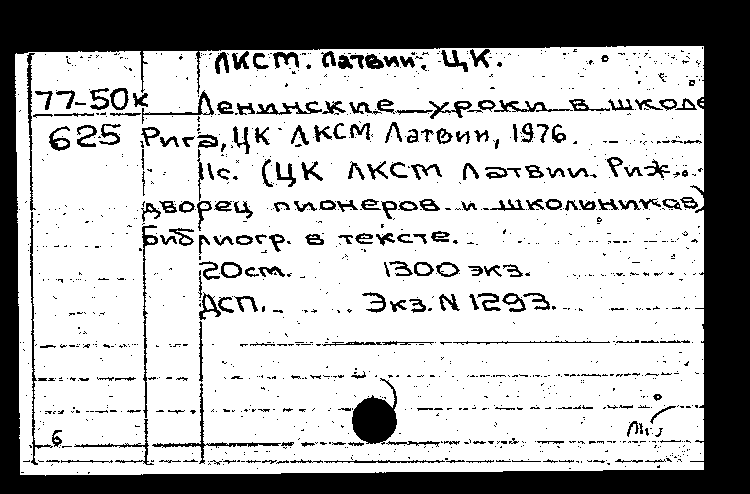 ЛКСМ. Латвии. ЦК.
77-50к Ленинские уроки в школе
625 Рига, ЦК ЛКСМ Латвии, 1976.
11с. (ЦК ЛКСМ Латвии. Риж.
дворец пионеров и школьников)
библиогр. в тексте.
20см. 1300 экз.
ДСП. Экз. N 1293.
6